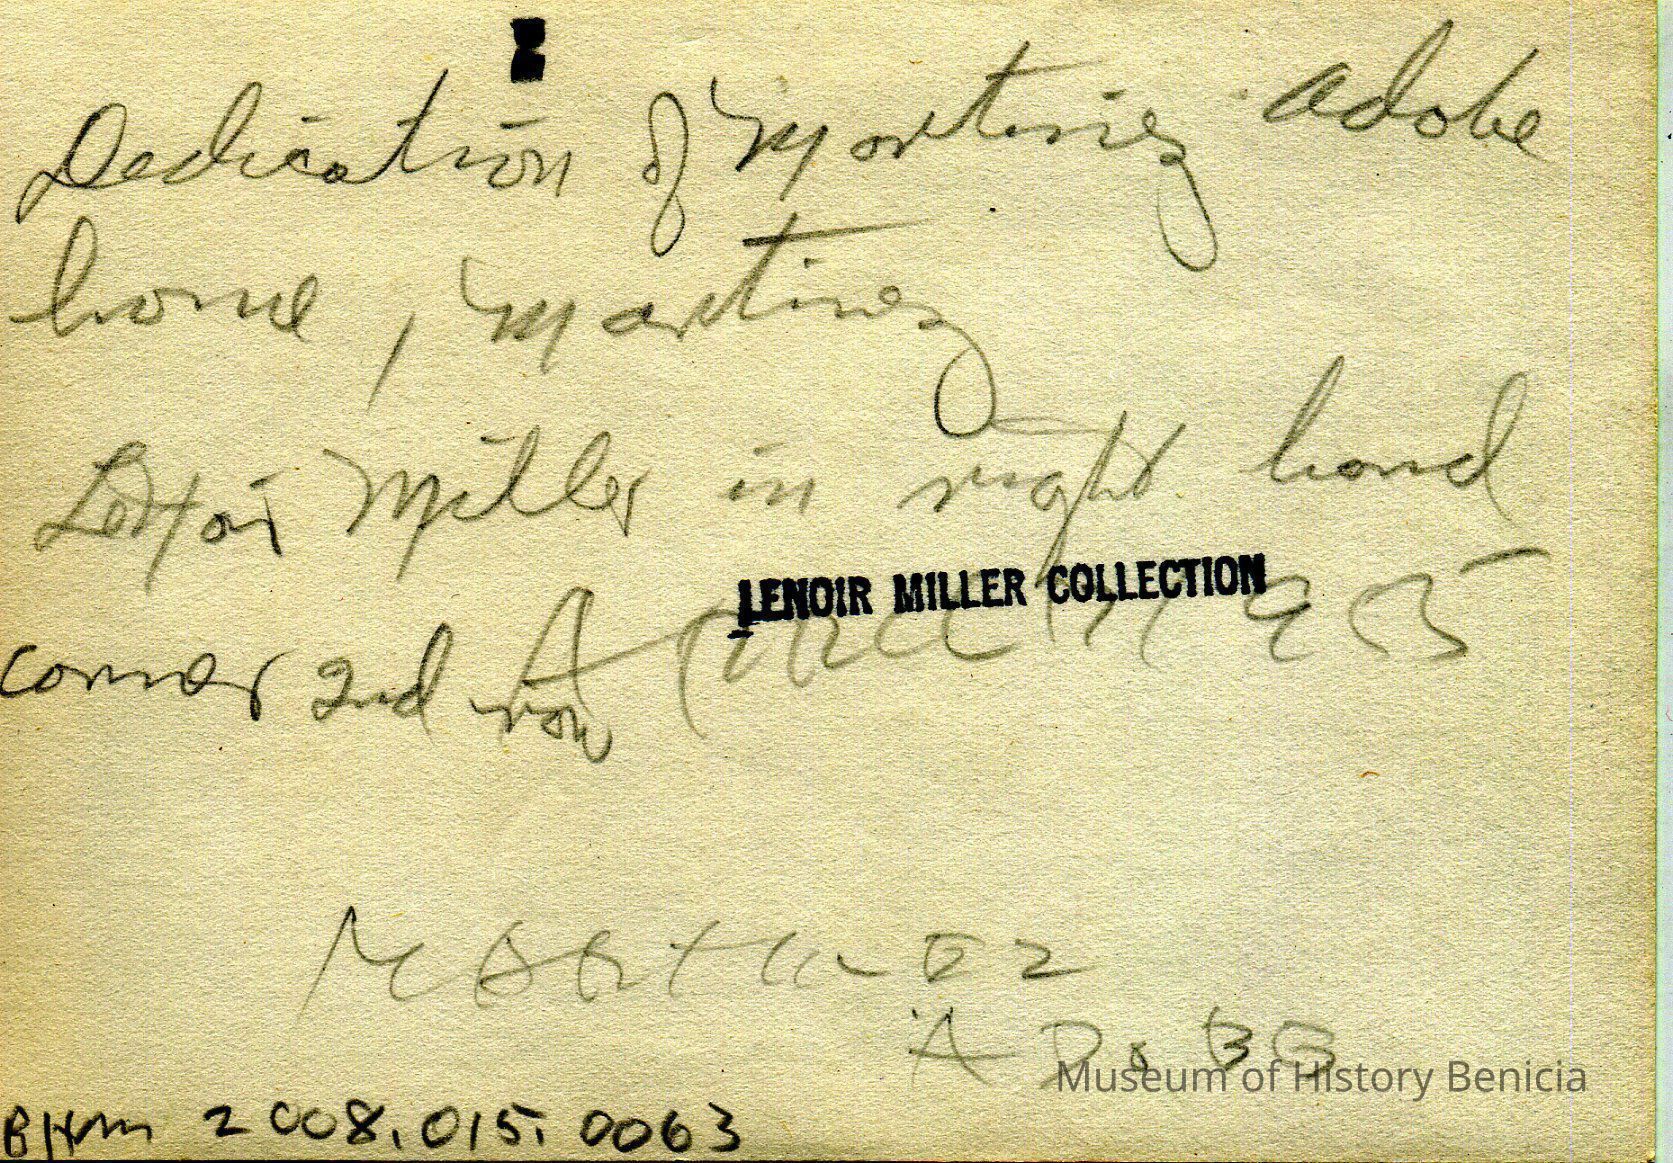 Dedication of Martinez adobe
home, Martinez
Miller in right hand
LENOIR MILLER COLLECTION
corner 2nd row
MARTINEZ
ADOBE
Museum of History Benicia
BHM 2008.015.0063